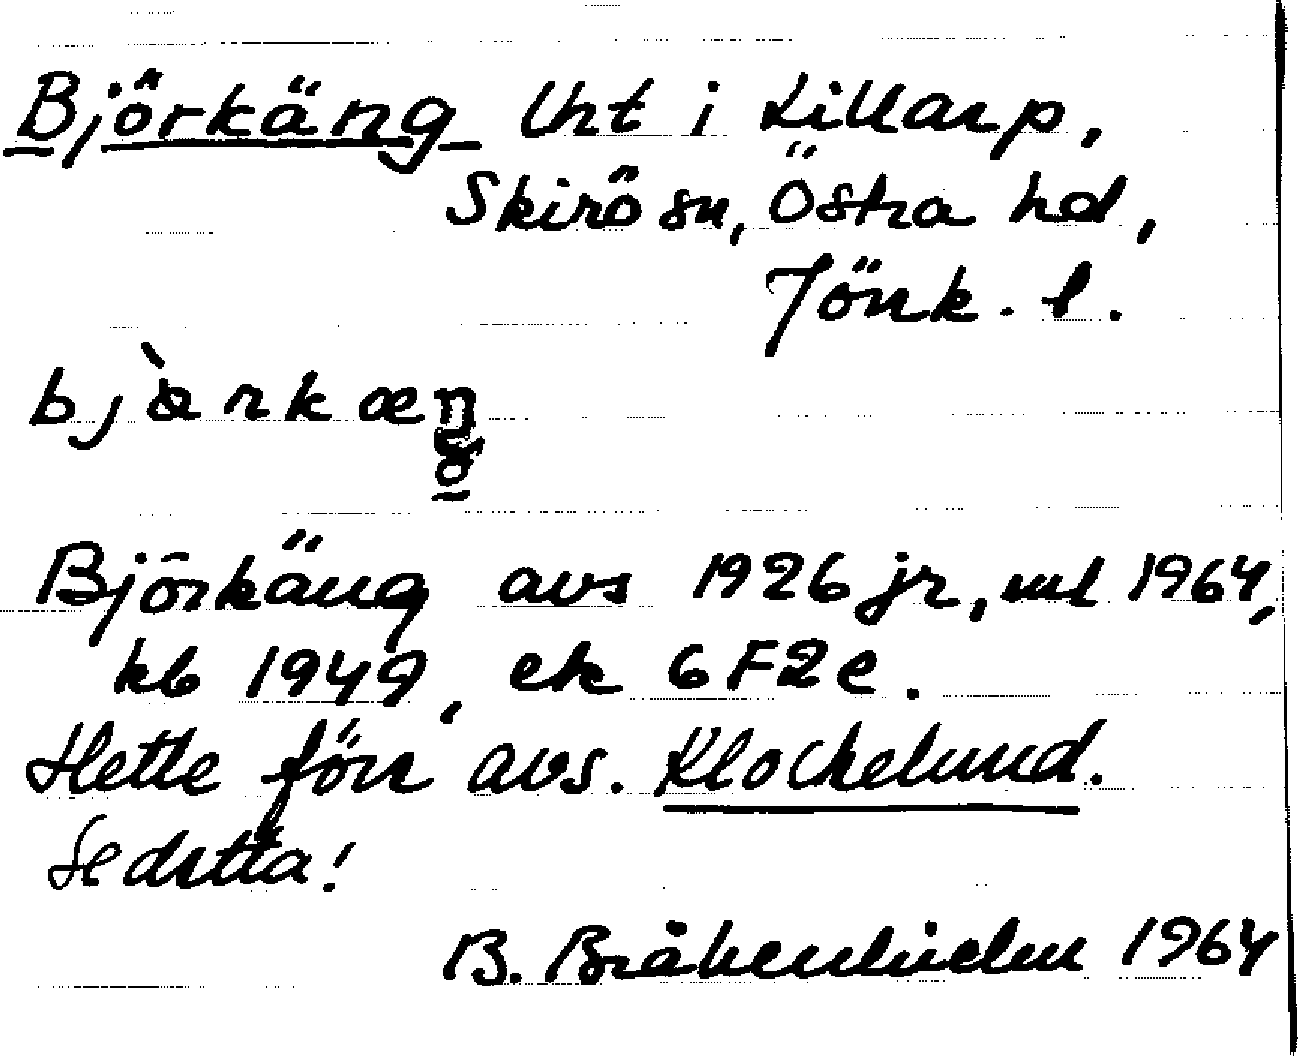 Björkäng lht i Lillarp,
Skirö sn, Östra hd,
Jönk. l.
bjærkæŋ
Björkäng avs 1926 jr, ml 1964,
kb 1949, ek 6F2e.
Hette förr avs. Klockelund.
Se detta!
B. 1964